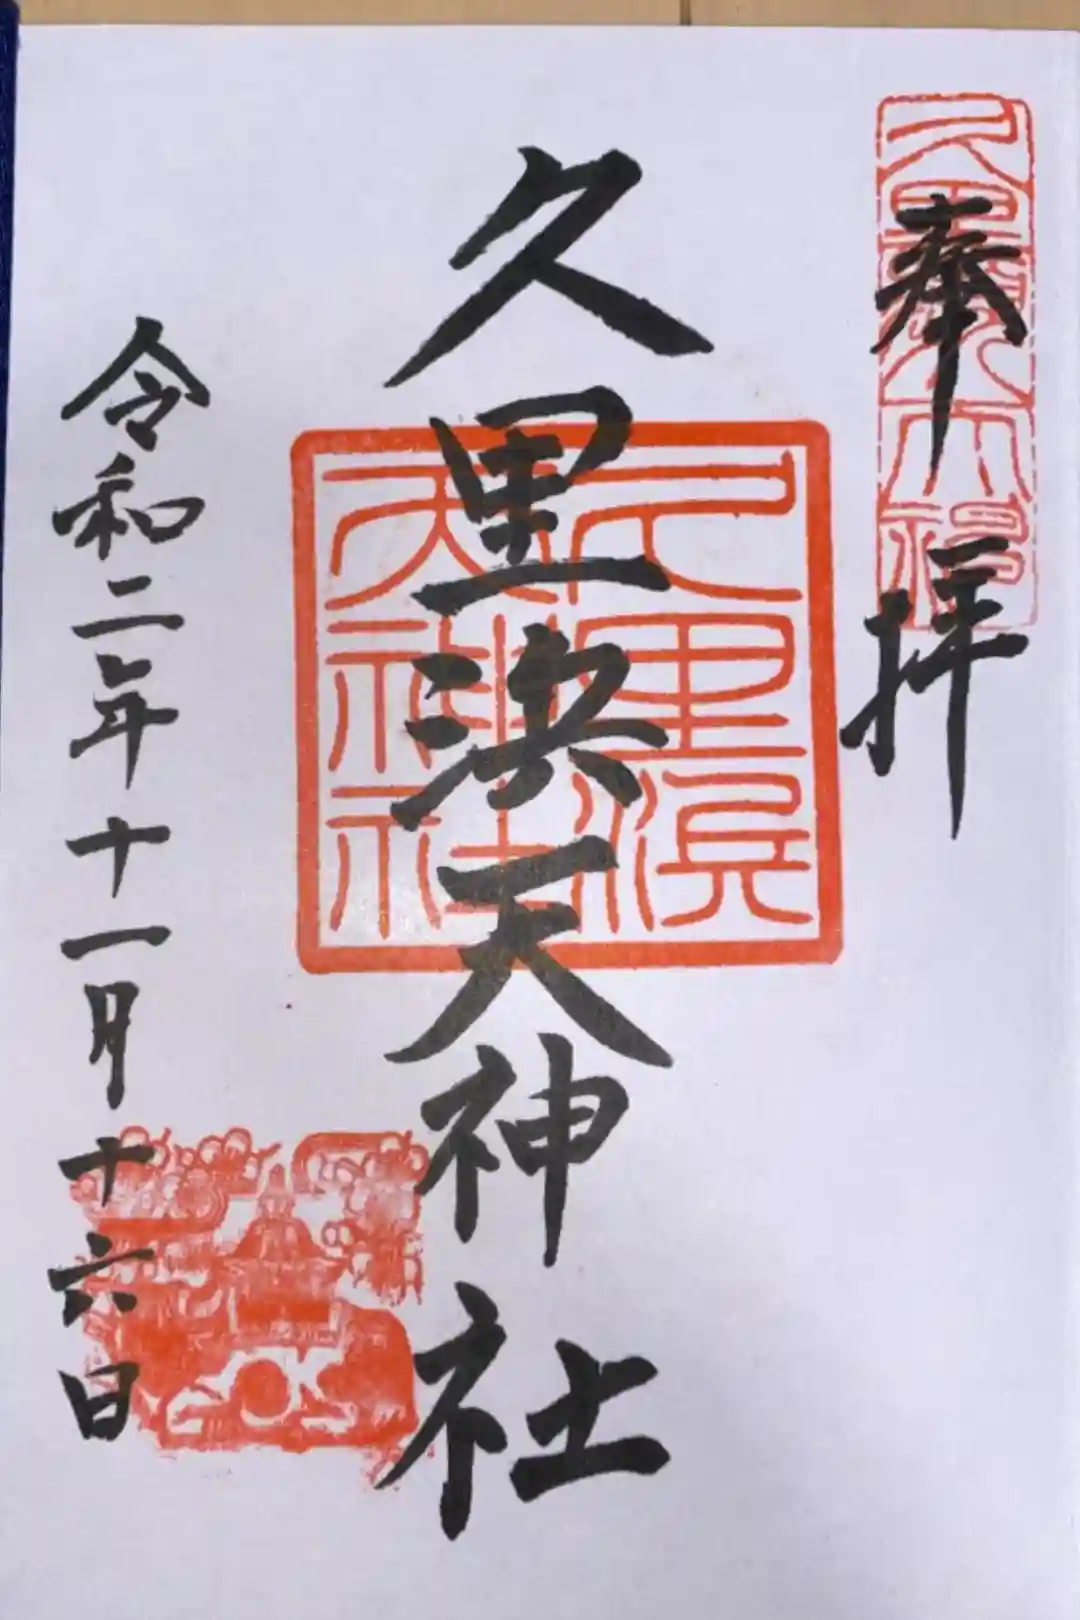 奉拝
久里浜天神社
久里浜天神社
令和二年十一月十六日